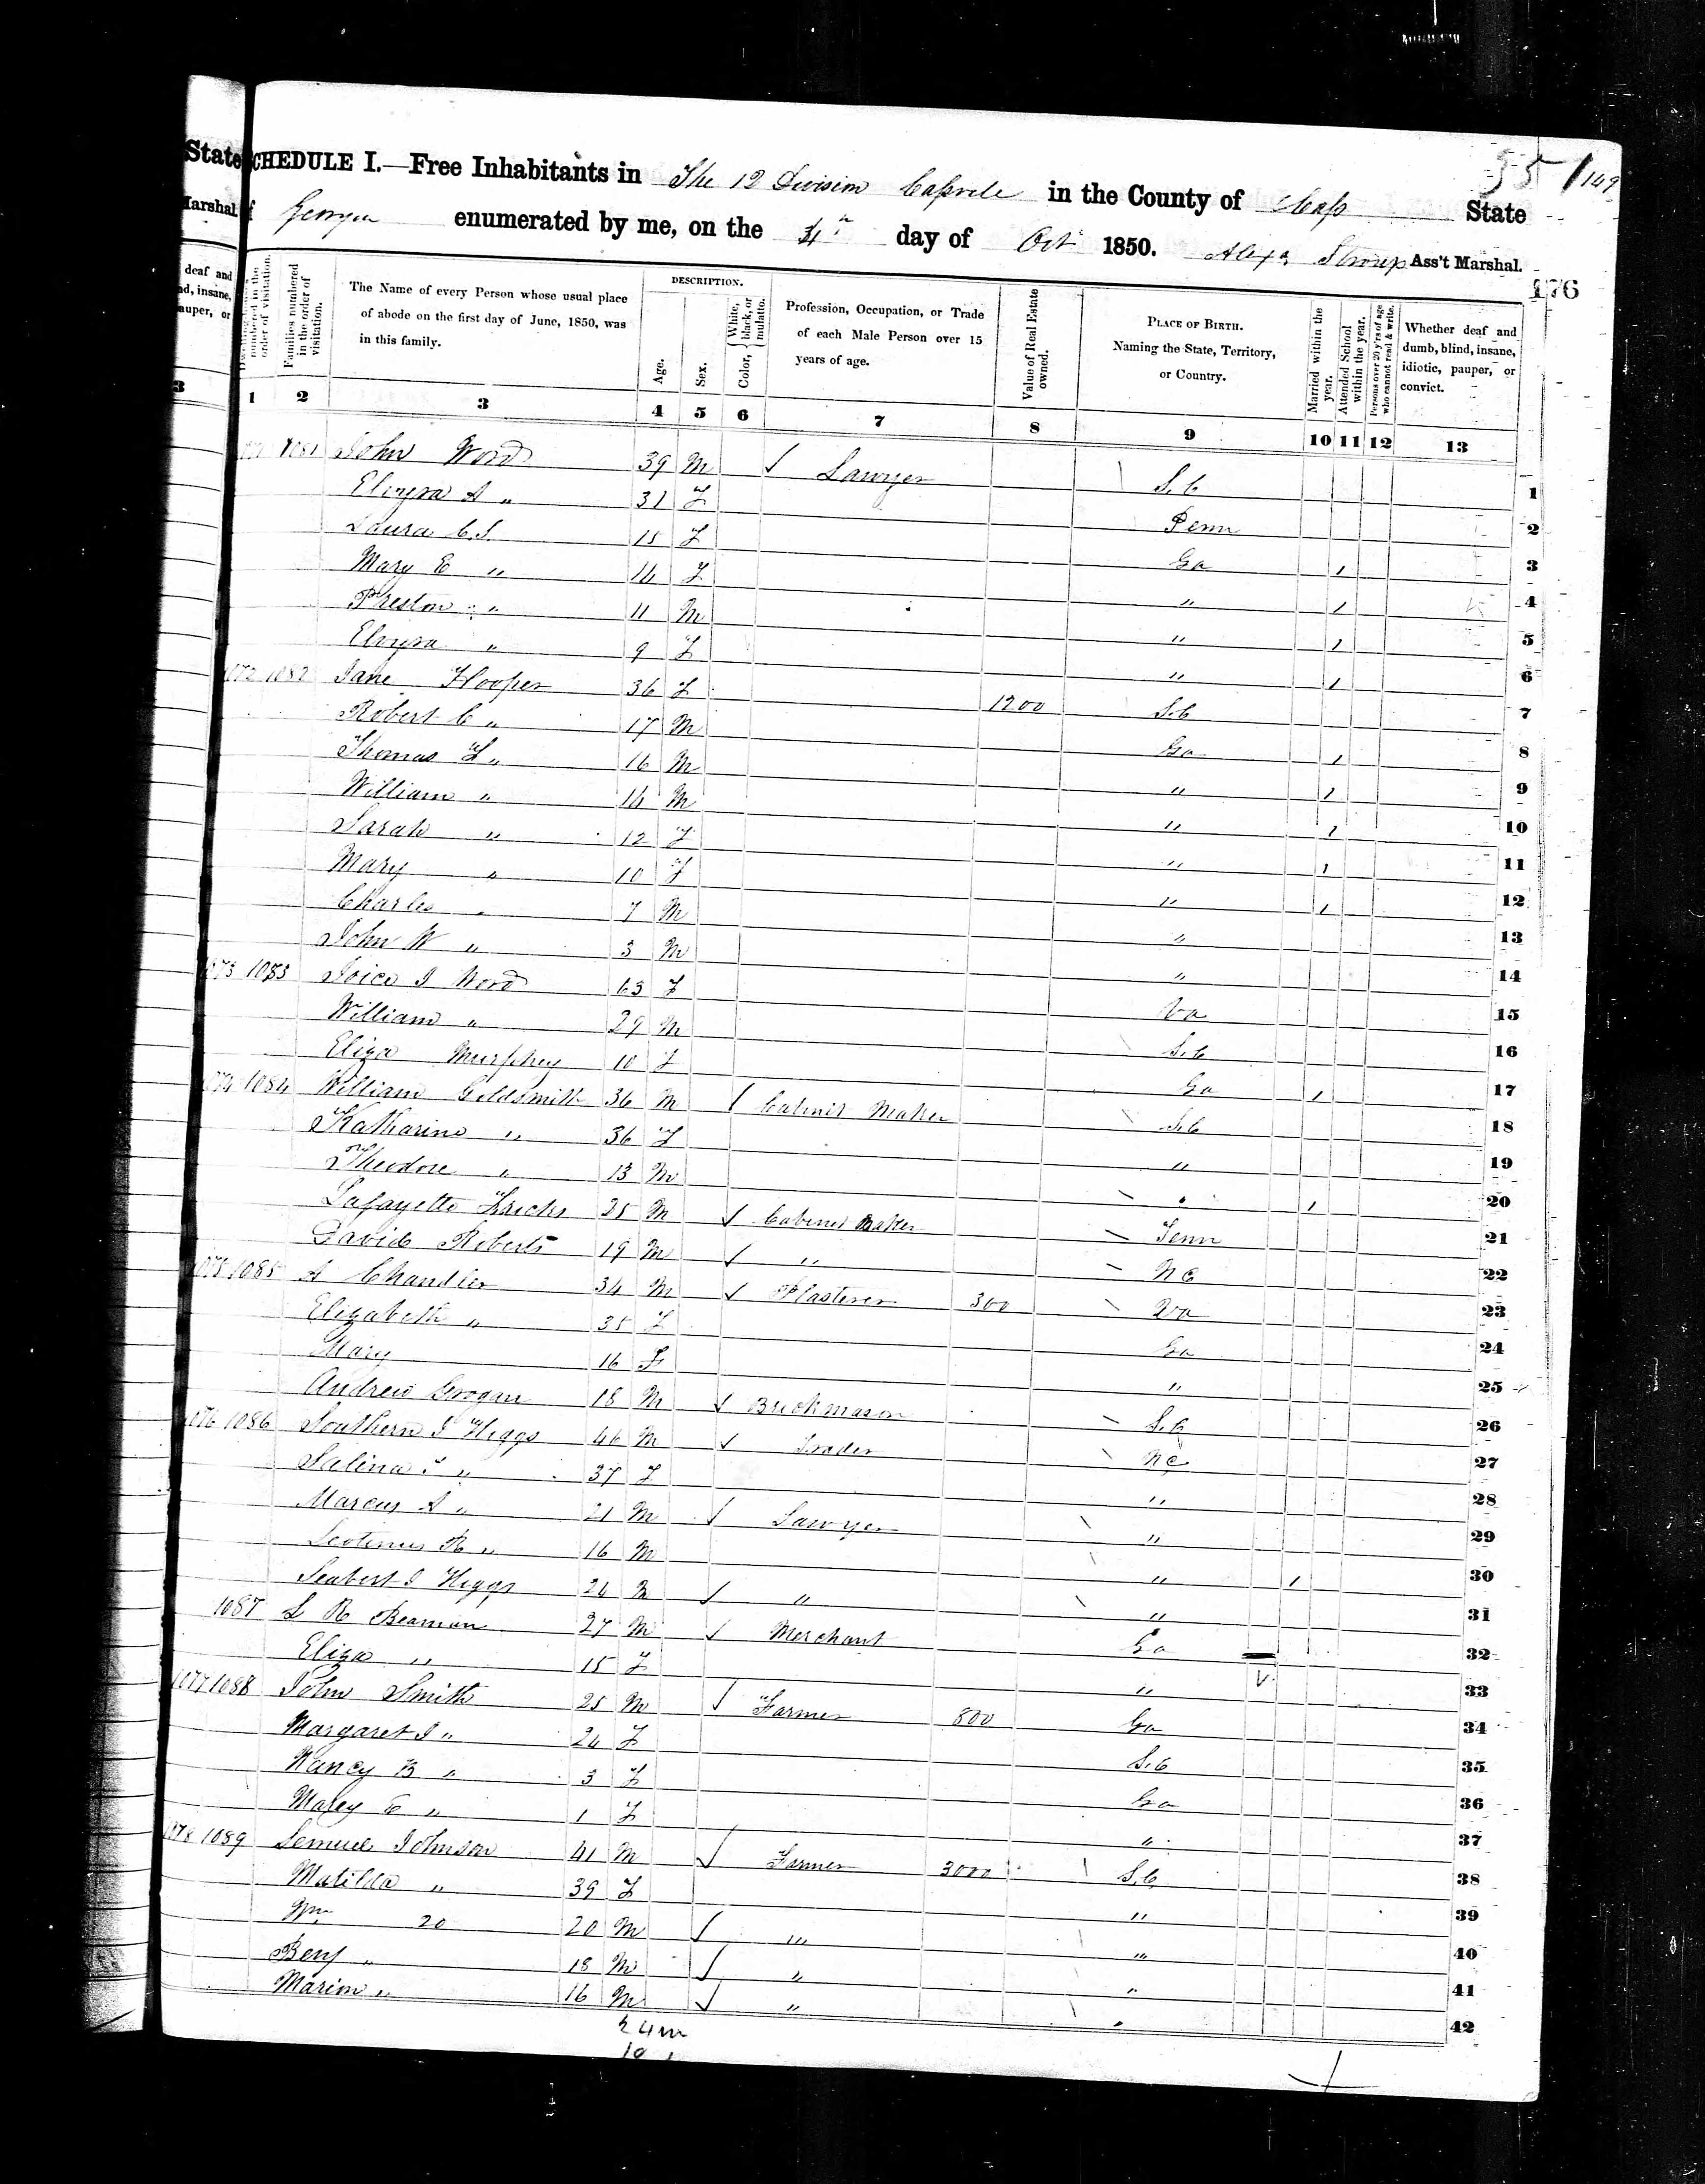 55 149
State SCHEDULE I.—Free Inhabitants in The 12 Division Casvile in the County of Cass State
Marshal. of Georgia enumerated by me, on the 4th day of Oct 1850. Alexr Stroup Ass't Marshal.
176
deaf and
nd, insane,
auper, or
3
Dwelling-houses numbered in the order of visitation.
Families numbered in the order of visitation.
The Name of every Person whose usual place of abode on the first day of June, 1850, was in this family.
DESCRIPTION.
Age.
Sex.
Color, { White, black, or mulatto.
Profession, Occupation, or Trade of each Male Person over 15 years of age.
Value of Real Estate owned.
PLACE OF BIRTH. Naming the State, Territory, or Country.
Married within the year.
Attended School within the year.
Persons over 20 y'rs of age who cannot read & write.
Whether deaf and dumb, blind, insane, idiotic, pauper, or convict.
1 2 3 4 5 6 7 8 9 10 11 12 13
1081 John Word 39 M / Lawyer S.C 1
Elvyra A " 31 F Penn 2
Laura C.S. 15 F Ga / 3
Mary E " 14 F " / 4
Preston " 11 M " / 5
Elvyra " 9 F " / 6
1072 1082 Jane Hooper 36 F 1200 S.C 7
Robert C " 17 M Ga / 8
Thomas F " 16 M " / 9
William " 14 M " / 10
Sarah " 12 F " / 11
Mary " 10 F " / 12
Charles " 7 M " 13
John W " 3 M " 14
1073 1083 Joice J Word 63 F Va 15
William " 29 M S.C 16
Eliza Murphey 10 F Ga / 17
1074 1084 William Goldsmith 36 M / Cabinet Maker S.C 18
Katharine " 36 F " 19
Theodore " 13 M " / 20
Lafayette 25 M / Cabinet Maker Tenn 21
David Roberts 19 M / " N C 22
1075 1085 A Chandler 34 M / Plasterer 300 Va 23
Elizabeth " 35 F Ga 24
Mary 16 F " 25
Andrew Grogan 18 M / Brickmason S.C 26
1076 1086 Southern J Higgs 46 M / Trader N C 27
Salina " 37 F " 28
Marcus A " 21 M / Lawyer " 29
R " 16 M " / 30
Seabert J Higgs 24 M / " " 31
1087 L R Beaman 27 M / Merchant Ga 32
Eliza " 15 F " 33
1077 1088 John Smith 25 M / Farmer 800 Ga 34
Margaret J " 24 F S.C 35
Nancy B " 3 F Ga 36
Marey E " 1 F " 37
1078 1089 Lemuel Johnson 41 M / Farmer 3000 S.C 38
Matilda " 39 F " 39
Wm 20 20 M / " " 40
Benj " 18 M / " " 41
Marion " 16 M / " " 42
24 m